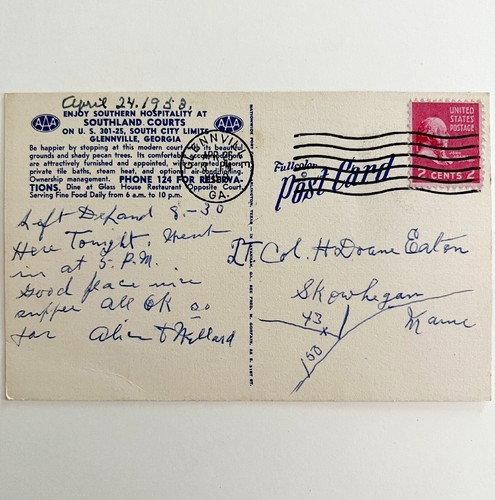 April 24. 1953,
ENJOY SOUTHERN HOSPITALITY AT
AAA SOUTHLAND COURTS AAA
ON U. S. 301-25, SOUTH CITY LIMITS
GLENNVILLE, GEORGIA
Be happier by stopping at this modern court its beautiful
grounds and shady pecan trees. Its comfortable
are attractively furnished and appointed, with carpeted floors,
private tile baths, steam heat, and optional air-conditioning.
Ownership management. PHONE 124 FOR RESERVA-
TIONS. Dine at Glass House Restaurant Opposite Court,
Serving Fine Food Daily from 6 a.m. to 10 p.m.
Left Deland 8-30
Here Tonight,
in at 5. P.M.
Good place nice
supper All OK so
far Alice &
GLENNVILLE
APR 25
GA.
Fullcolor
Post Card
UNITED
STATES
POSTAGE
2 CENTS 2
Lt Col. H Doane Eaton
Skowhegan
43
Maine
150